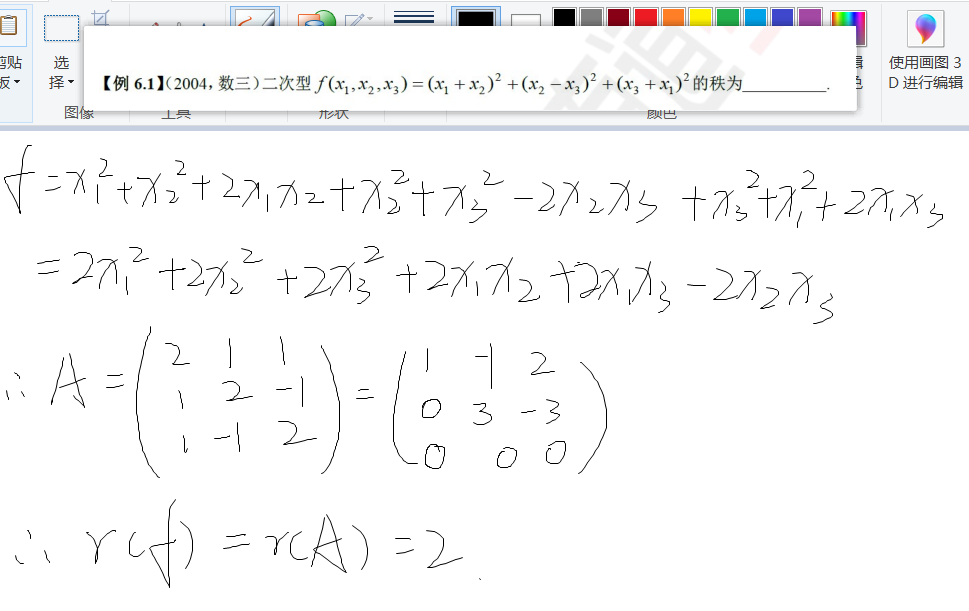 剪贴
板
选
择
图像
工具
形状
颜色
使用画图 3
D 进行编辑
【例 6.1】(2004,数三)二次型 f(x₁,x₂,x₃)=(x₁+x₂)²+(x₂−x₃)²+(x₃+x₁)²的秩为__________.
f=x₁²+x₂²+2x₁x₂+x₂²+x₃²−2x₂x₃+x₃²+x₁²+2x₁x₃
=2x₁²+2x₂²+2x₃²+2x₁x₂+2x₁x₃−2x₂x₃
∴A=(2 1 1; 1 2 -1; 1 -1 2)=(1 -1 2; 0 3 -3; 0 0 0)
∴ r(f)=r(A)=2.